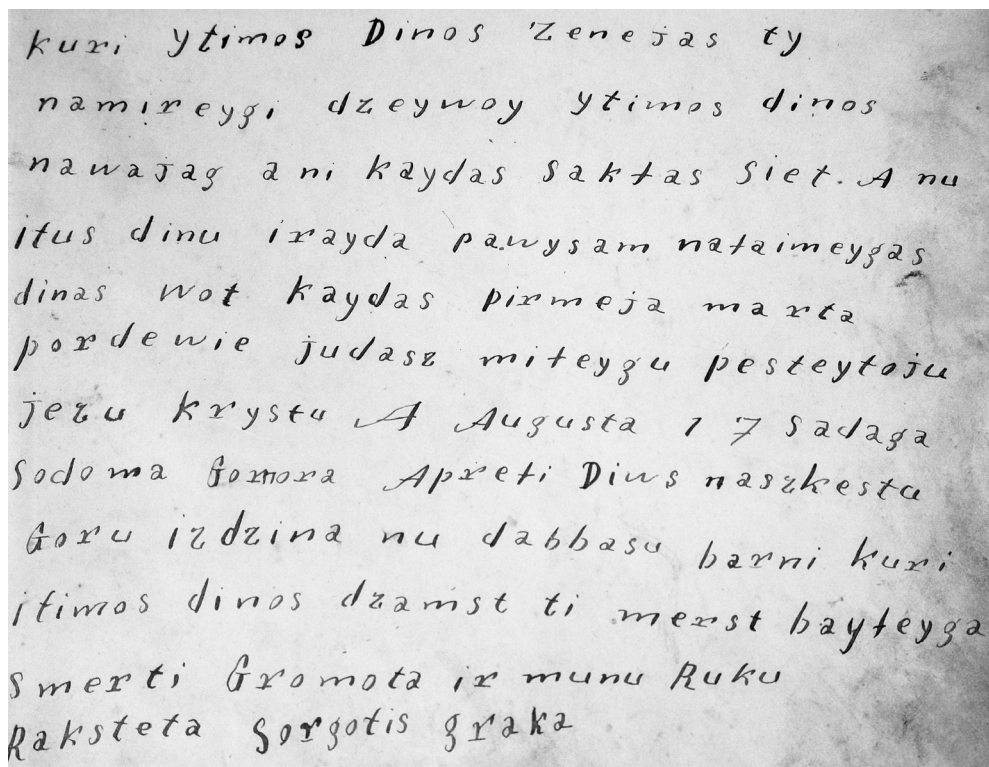 kuri ytimos Dinos Zenejas ty
namireygi dzeywoy ytimos dinos
nawajag ani kaydas saktas Siet. A nu
itus dinu irayda pawysam nataimeygas
dinas wot kaydas pirmeja marta
pordewie judasz miteygu pesteytoju
jezu krystu A Augusta 17 sadaga
Sodoma Gomora Apreti Diws naszkestu
Goru izdzina nu dabbasu barni kuri
itimos dinos dzamst ti merst bayteyga
smerti Gromota ir munu Ruku
Raksteta Sorgotis graka